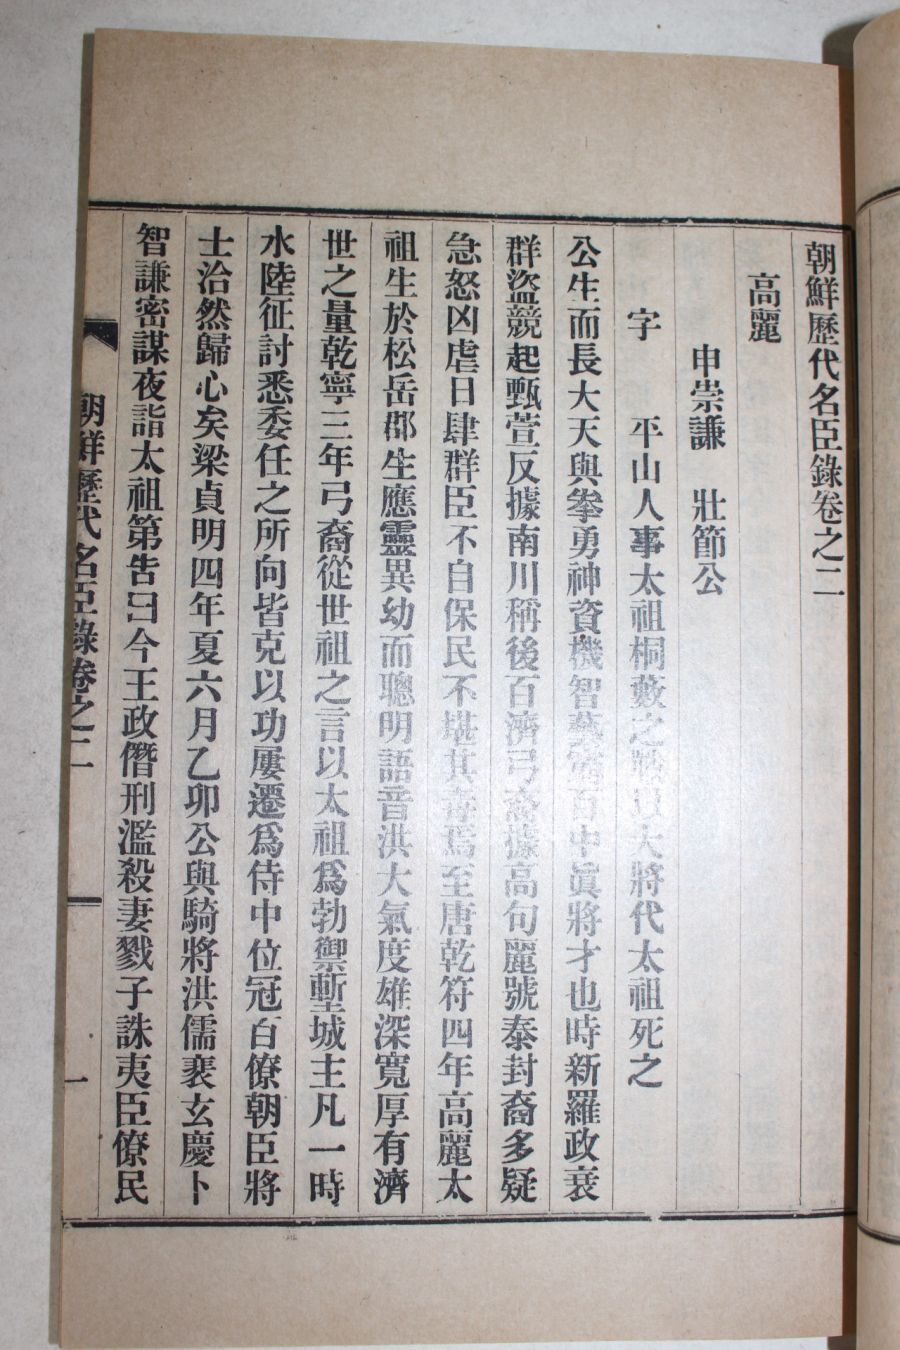 朝鮮歷代名臣錄卷之二
高麗
申崇謙 壯節公
字 平山人事太祖桐藪之戰以大將代太祖死之
公生而長大天與拳勇神資機智藝百中眞將才也時新羅政衰
群盜競起甄萱反據南川稱後百濟弓裔據高句麗號泰封裔多疑
急怒凶虐日肆群臣不自保民不堪其毒焉至唐乾符四年高麗太
祖生於松岳郡生應靈異幼而聰明語音洪大氣度雄深寬厚有濟
世之量乾寧三年弓裔從世祖之言以太祖爲勃禦塹城主凡一時
水陸征討悉委任之所向皆克以功屢遷爲侍中位冠百僚朝臣將
士洽然歸心矣梁貞明四年夏六月乙卯公與騎將洪儒裵玄慶卜
智謙密謀夜詣太祖第告曰今王政僭刑濫殺妻戮子誅夷臣僚民
朝鮮歷代名臣錄卷之二 一